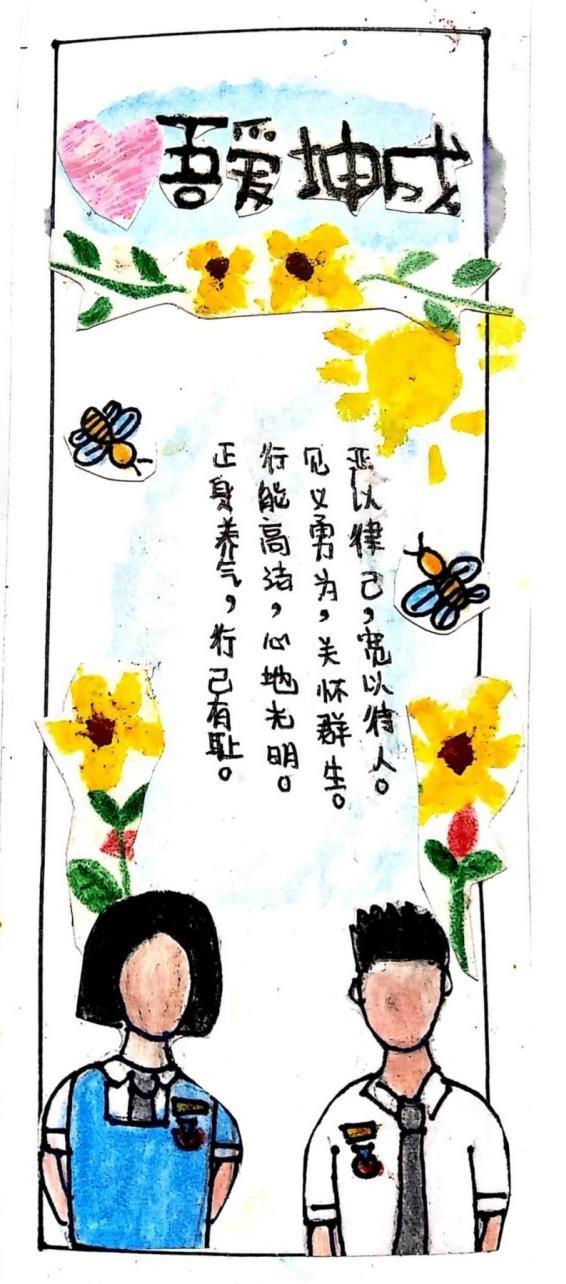 吾爱坤成
严以律己，宽以待人。
见义勇为，关怀群生。
行能高洁，心地光明。
正身养气，行己有耻。